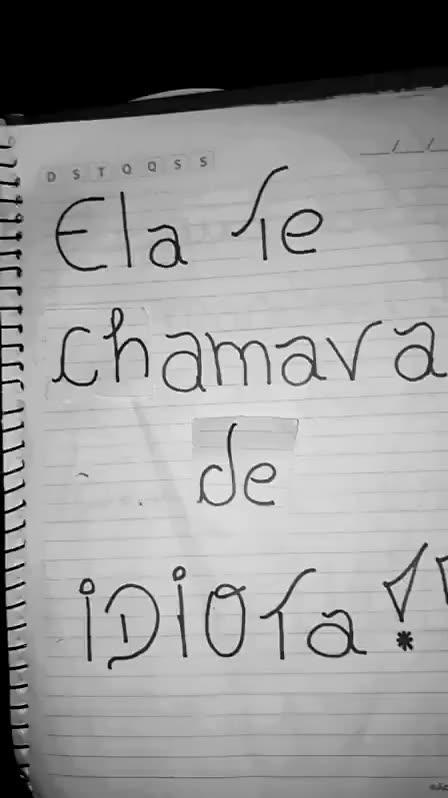 D S T Q Q S S
__/__/
Ela Te
chamava
de
iDiOTa!!